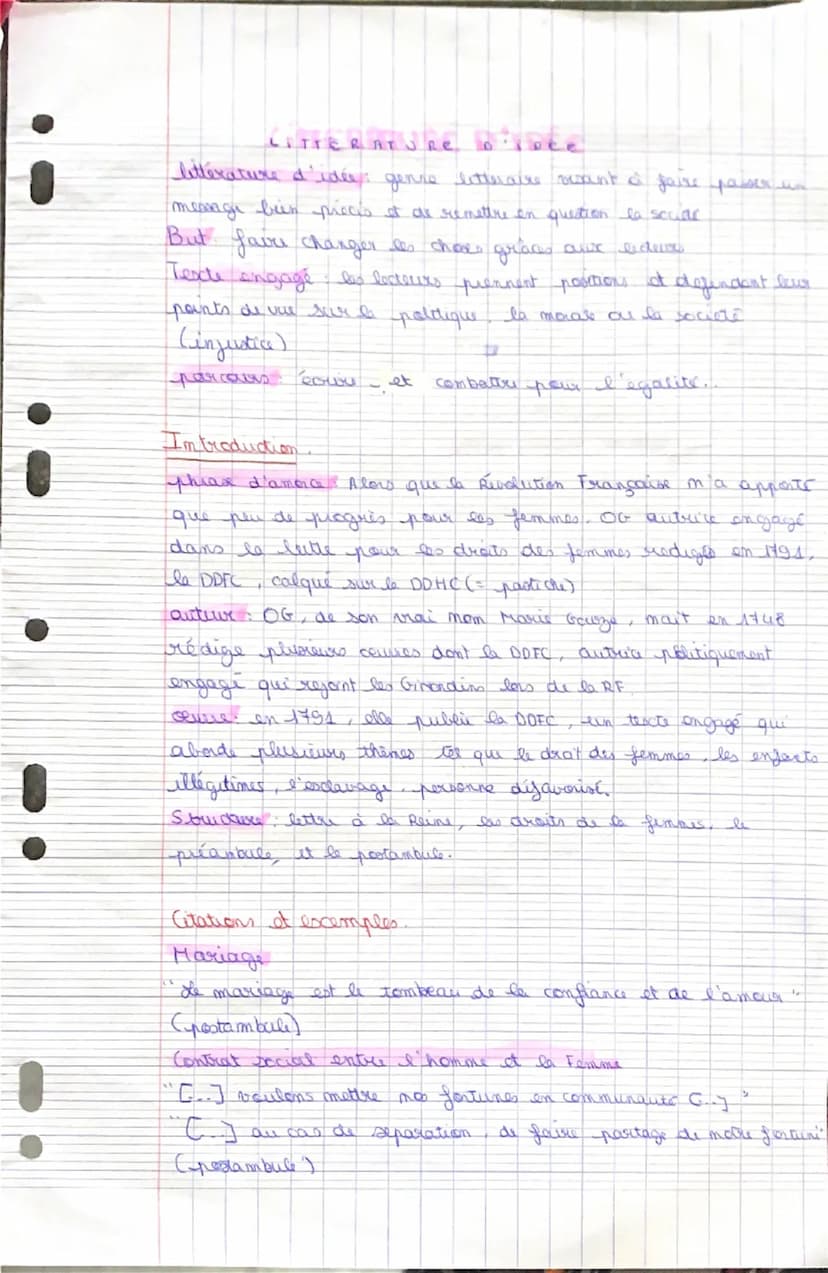 LITTERATURE D'IDEE
littérature d'idée : genre littéraire visant à faire passer un
message bien précis et de remettre en question la
But : faire changer les choses grâces aux lecteurs
Texte engagé : les prennent positions et défendant leur
points de vue sur la politique, la morale ou la société
(injustice)
parcours : écrire - et combattre pour l'égalité..
Introduction.
phrase d'amorce : Alors que la Révolution Française n'a apporté
que peu de progrès pour les femmes. OG autrice engagé
dans la lutte pour les droits des femmes rédige en 1791,
la DDFC, calqué sur la DDHC (= pastiche)
auteur : OG, de son vrai nom Marie Gouze, nait en 1748
rédige plusieurs œuvres dont la DDFC, autrice politiquement
engagé qui rejoint les Girondins lors de la RF.
œuvre : en 1791, elle publie la DDFC, un texte engagé qui
aborde plusieurs thèmes tel que le droit des femmes, les enfants
illégitimes, l'esclavage, personne défavorisé.
Structure : lettre à la Reine, les droits de la femmes, le
préambule, et le postambule.
Citations et exemples.
Mariage
"Le mariage est le tombeau de la confiance et de l'amour"
(postambule)
Contrat social entre l'homme et la Femme
"[...] voulons mettre nos fortunes en communauté [...]"
"[...] au cas de séparation, de faire partage de notre fortune"
(postambule)